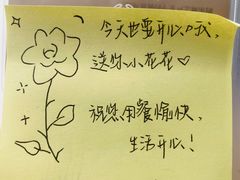 今天也要开心哦,
送你小花花♡
祝您用餐愉快,
生活开心!